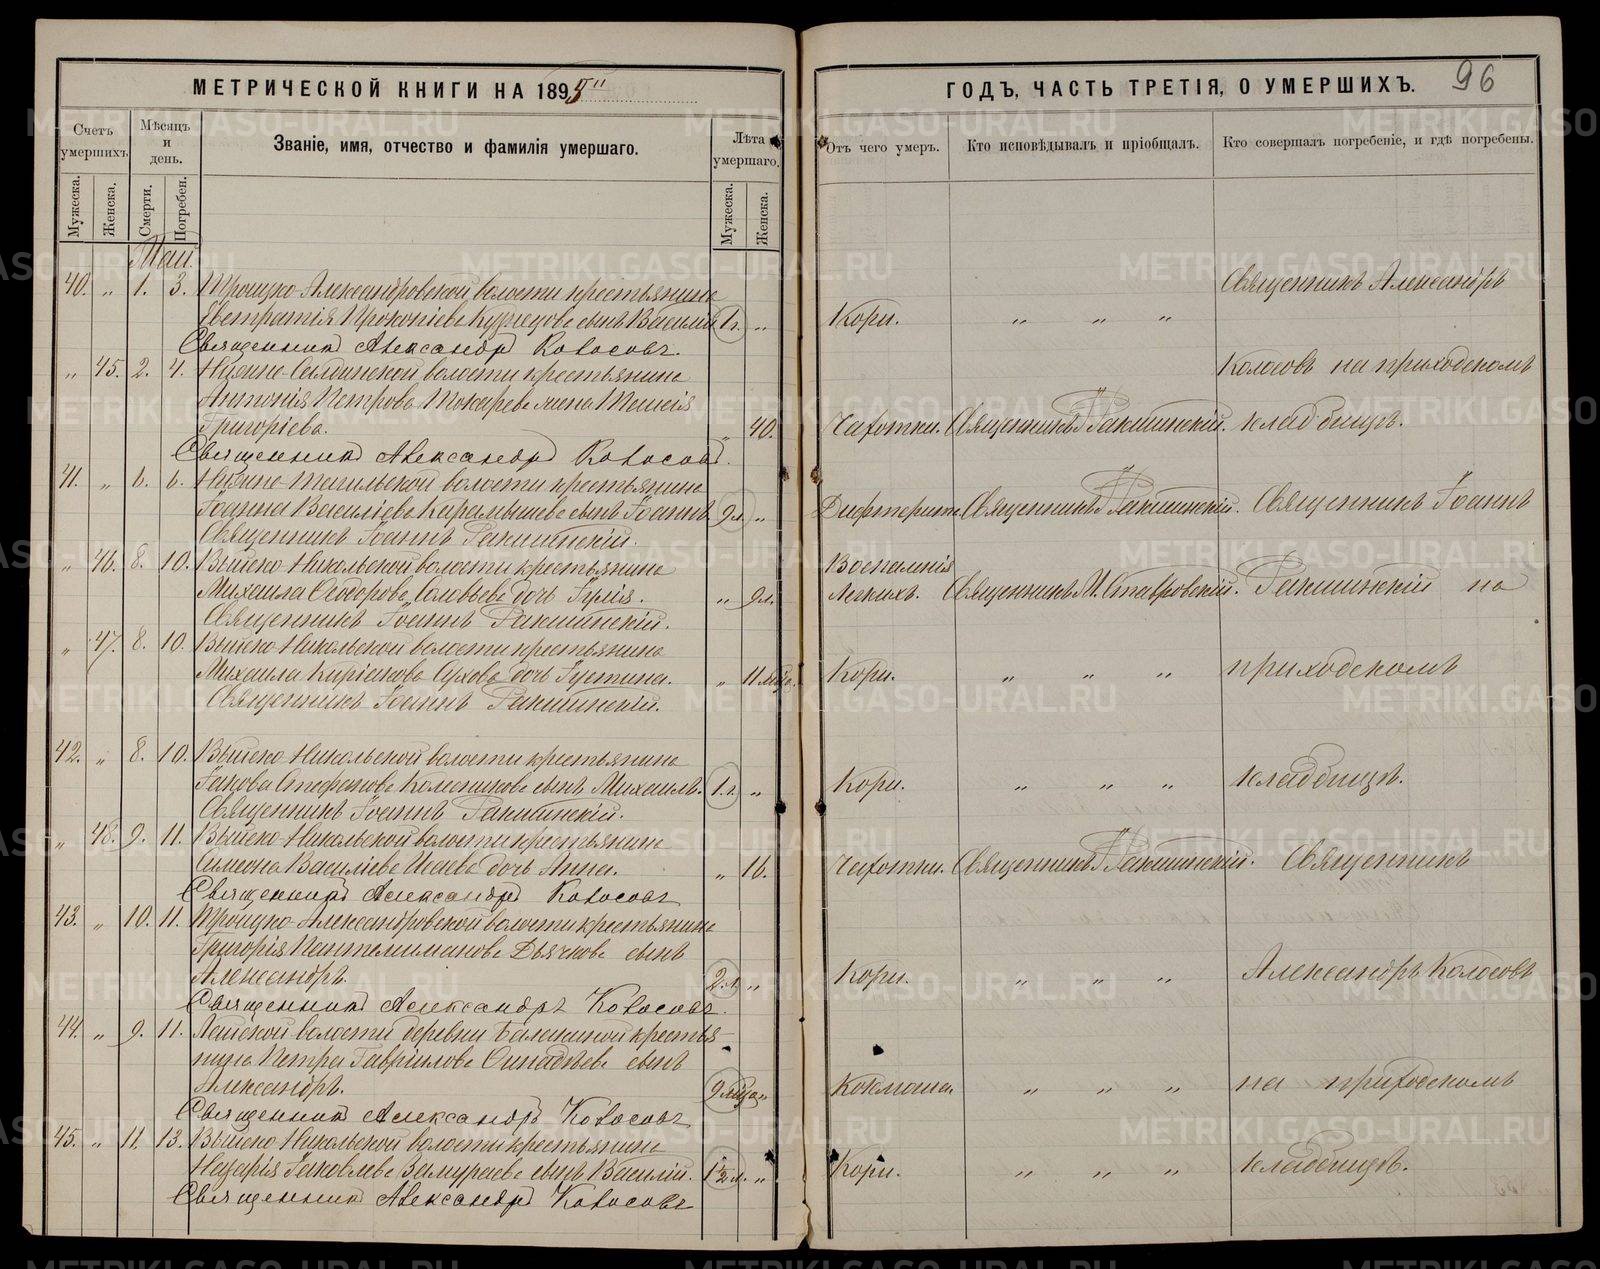 МЕТРИЧЕСКОЙ КНИГИ НА 1895
ГОДЪ, ЧАСТЬ ТРЕТІЯ, О УМЕРШИХЪ.
96
Счетъ умершихъ
Мѣсяцъ и день.
Званіе, имя, отчество и фамилія умершаго.
Лѣта умершаго.
Отъ чего умеръ.
Кто исповѣдывалъ и пріобщалъ.
Кто совершалъ погребеніе, и гдѣ погребены.
Мужеска.
Женска.
Смерти.
Погребен.
Мужеска.
Женска.
Май.
40. „ 1. 3. Троицко-Александровской волости крестьянина
Священникъ Александръ
Евстратія Прокопіева Кузнецова сынъ Василій 1 г. „ Кори. „ „ „
Священникъ Александръ Колосовъ.
„ 45. 2. 4. Нижне-Салдинской волости крестьянина
Колосовъ на приходскомъ
Антонія Петрова Токарева жена Таисія
Григоріева. „ 40. Чахотки. Священникъ І. Ракшинскій. кладбищѣ.
Священникъ Александръ Колосовъ.
41. „ 6. 6. Нижне-Тагильской волости крестьянина
Іоанна Василіева Карамышева сынъ Іоаннъ. 9 л. „ Дифтерита Священникъ І. Ракшинскій. Священникъ Іоаннъ
Священникъ Іоаннъ Ракшинскій.
„ 46. 8. 10. Выйско-Никольской волости крестьянина
Воспаленія
Михаила Ѳедорова Соловьева дочь Іулія. „ 9 л. Легкихъ. Священникъ И. Ставровскій. Ракшинскій на
Священникъ Іоаннъ Ракшинскій.
„ 47. 8. 10. Выйско-Никольской волости крестьянина
Михаила Киріакова Сухова дочь Іустина. „ 11 мѣс. Кори. „ „ „ приходскомъ
Священникъ Іоаннъ Ракшинскій.
42. „ 8. 10. Выйско-Никольской волости крестьянина
Іакова Стефанова Колесникова сынъ Михаилъ. 1 г. „ Кори. „ „ „ кладбищѣ.
Священникъ Іоаннъ Ракшинскій.
„ 48. 9. 11. Выйско-Никольской волости крестьянина
Симеона Василіева Исаева дочь Анна. „ 16. Чахотки. Священникъ І. Ракшинскій. Священникъ
Священникъ Александръ Колосовъ
43. „ 10. 11. Троицко-Александровской волости крестьянина
Григорія Пантелимонова Дьячкова сынъ
Александръ. 2 л. „ Кори. „ „ „ Александръ Колосовъ
Священникъ Александръ Колосовъ.
44. „ 9. 11. Лайской волости деревни Балакиной крестья-
нина Петра Гавріилова сынъ
Александръ. 9 мѣс. „ Коклюша. „ „ „ на приходскомъ
Священникъ Александръ Колосовъ
45. „ 11. 13. Выйско-Никольской волости крестьянина
Назарія Іаковлева Замураева сынъ Василій. 1½ л. „ Кори. „ „ „ кладбищѣ.
Священникъ Александръ Колосовъ
METRIKI.GASO-URAL.RU